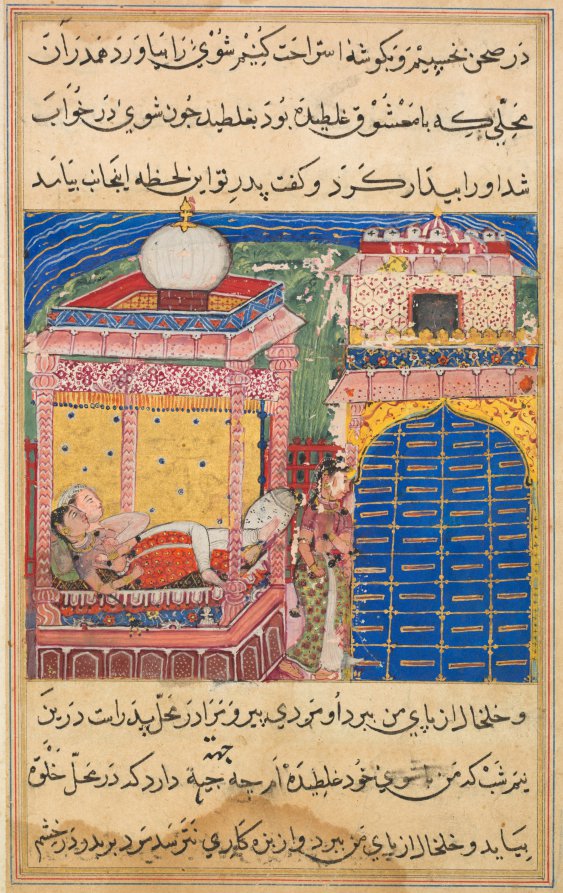 در صحن بخسپیم و بگوشهٔ استراحت کنیم شوی را بیاورد همدران
محلی که با معشوق غلطیده بود بغلطید چون شوی در خواب
شد او را بیدار کرد و کفت پدر تو این لحظه اینجا بیامد
و خلخال از پای من ببرد او مردی پیر و مرا در محل پدر است درین
نیم شب که من با شوی خود غلطیده‌ام چه جهة دارد که در محل خلوة
بیاید و خلخال از پای من ببرد و ازین کاری نترسد مرد بر پدر در خشم